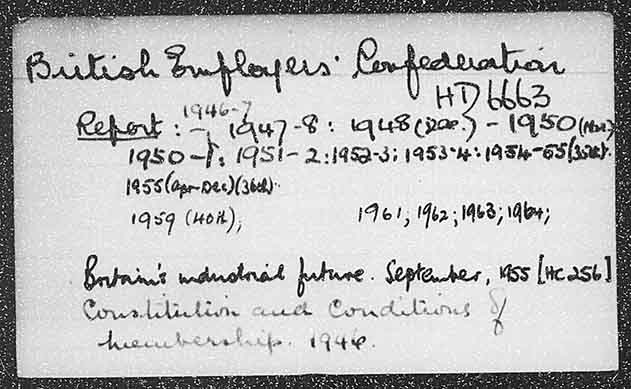 British Employers' Confederation
HD 6663
1946-7
Report : - , 1947-8 : 1948 (Dec.) - 1950 (Mar.)
1950-1 : 1951-2 : 1952-3 ; 1953-4 : 1954-55 (35th).
1955 (Apr-Dec) (36th).
1959 (40th) ; 1961 ; 1962 ; 1963 ; 1964 ;
Britain's industrial future. September, 1955 [HC 256]
Constitution and Conditions of
membership. 1946.